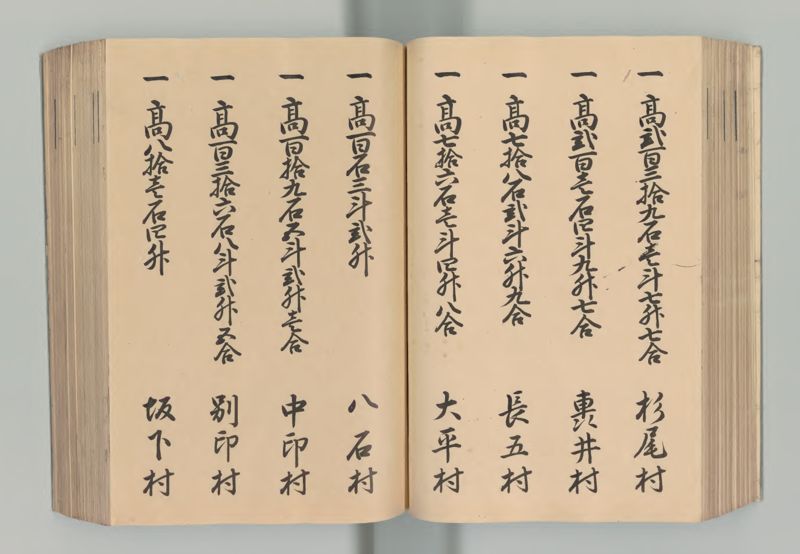 一 髙弐百三拾九石壱斗七升七合 杉尾村
一 髙弐百壱石四斗九升七合 轟井村
一 髙七拾八石弐斗六升九合 長五村
一 髙七拾六石壱斗四升八合 大平村
一 髙百石三斗弐升 八石村
一 髙百拾九石五斗弐升壱合 中印村
一 髙百三拾六石八斗弐升五合 別印村
一 髙八拾壱石四升 坂下村